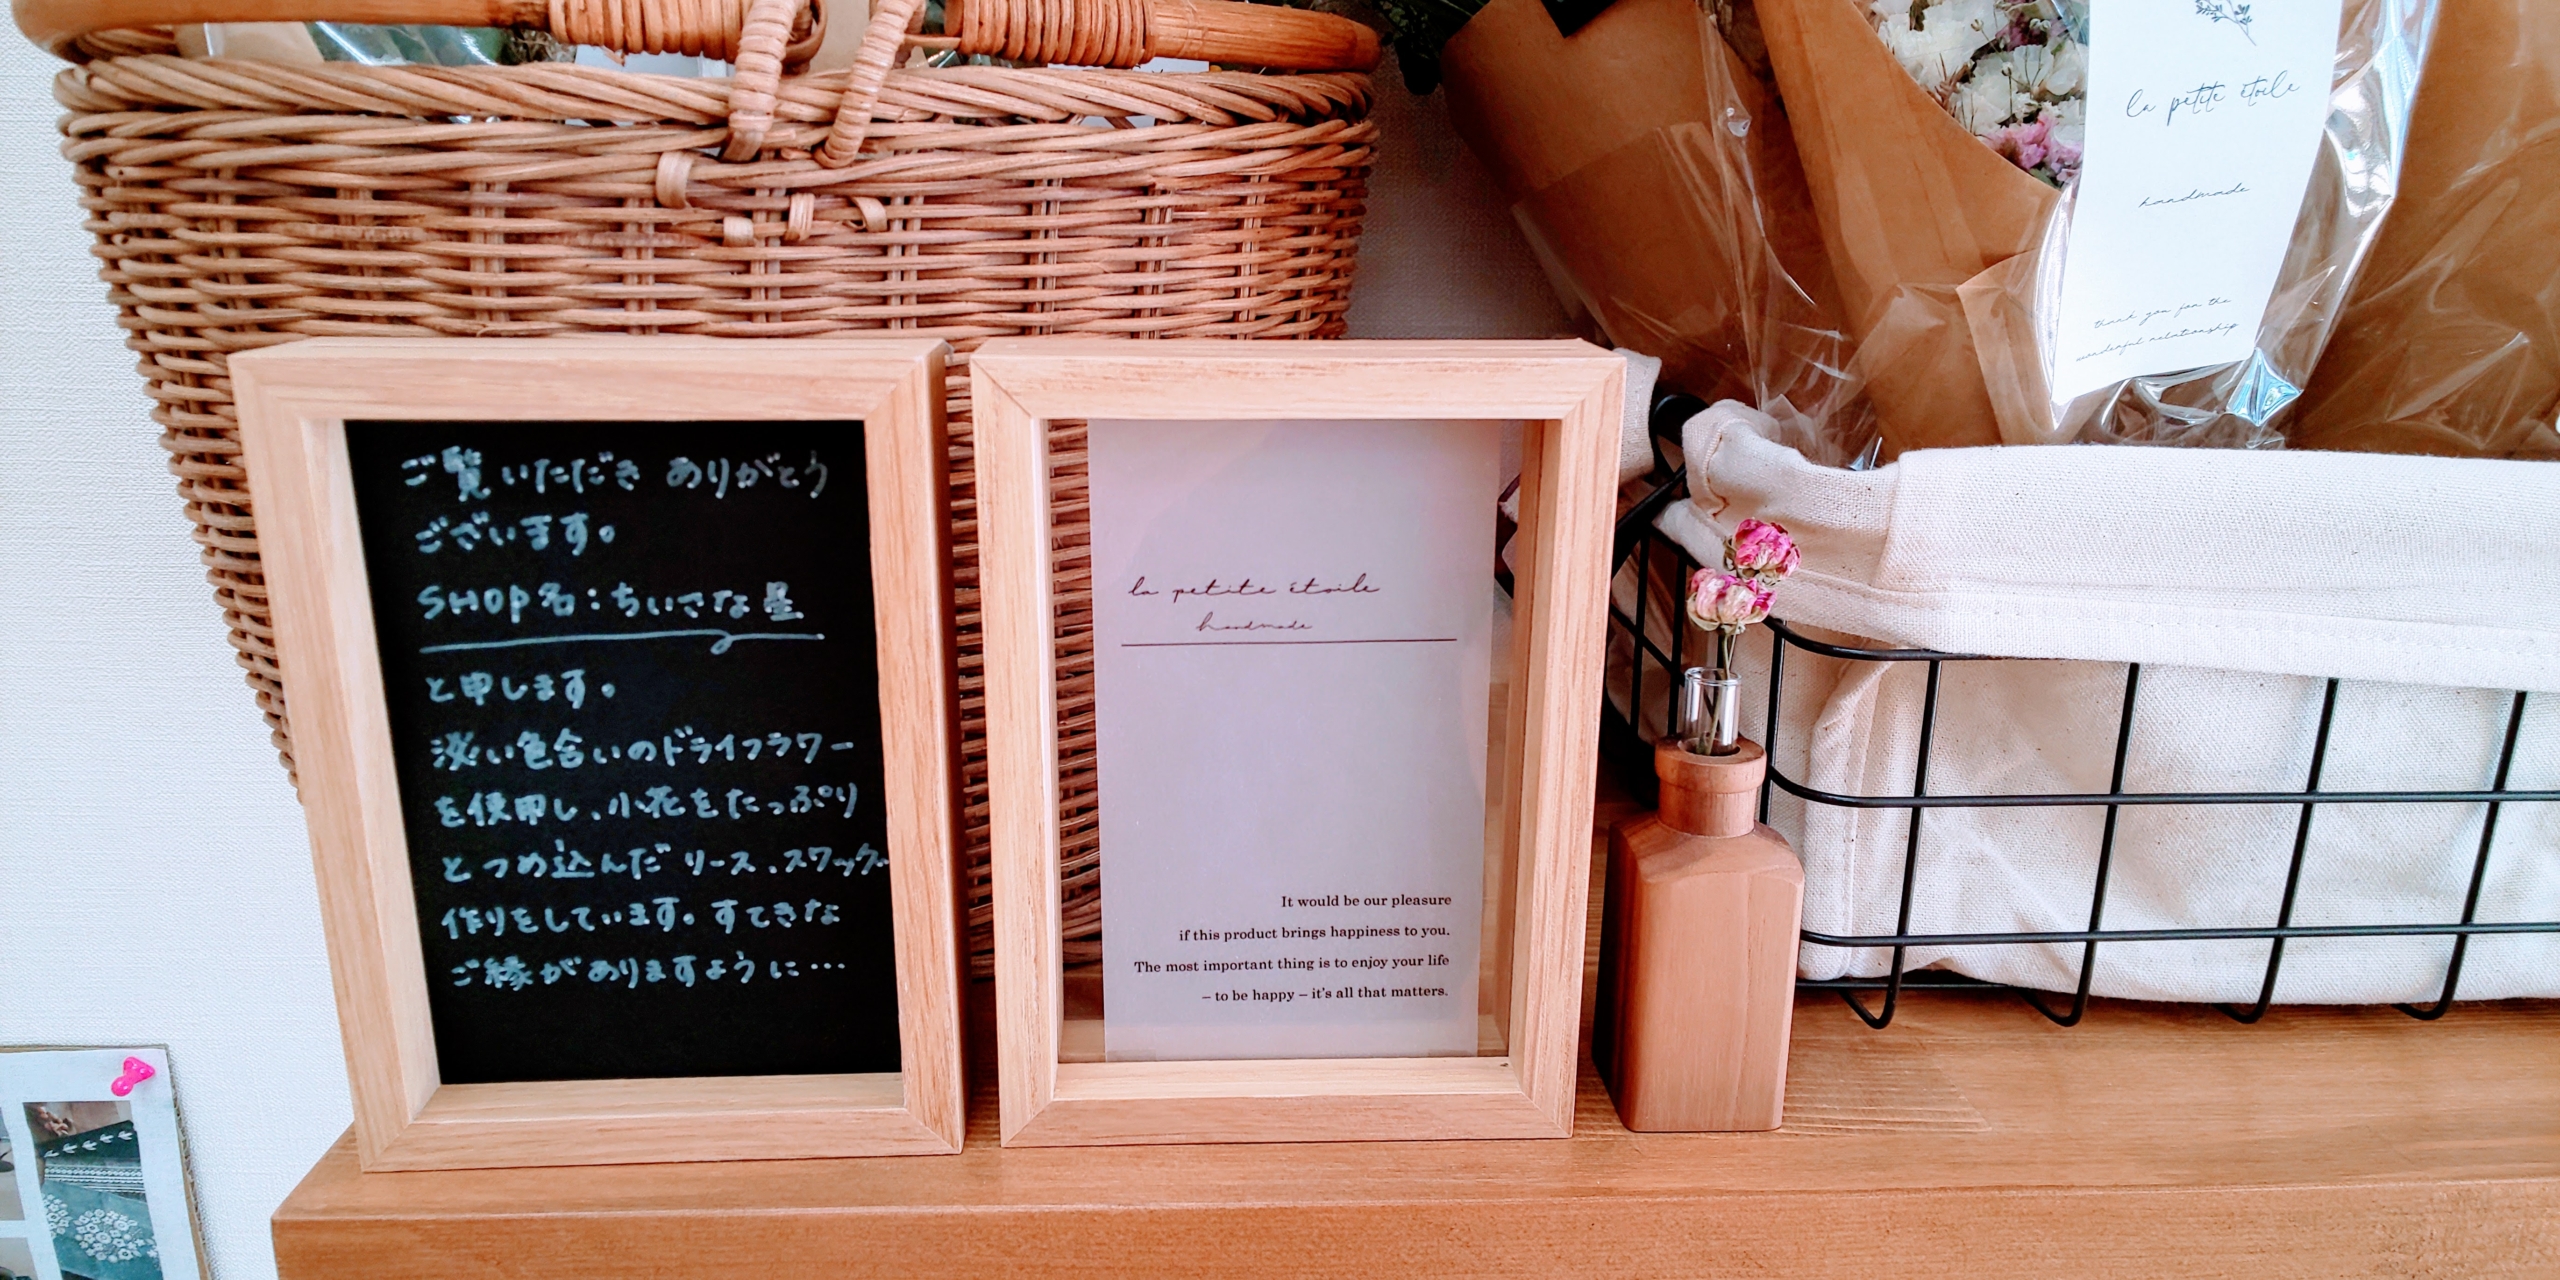 ご覧いただき ありがとう
ございます。
SHOP名：ちいさな星
と申します。
淡い色合いのドライフラワー
を使用し、小花をたっぷり
とつめ込んだ リース、スワッグ
作りをしています。すてきな
ご縁がありますように…
la petite étoile
handmade
It would be our pleasure
if this product brings happiness to you.
The most important thing is to enjoy your life
– to be happy – it's all that matters.
la petite étoile
handmade
thank you for the
wonderful relationship